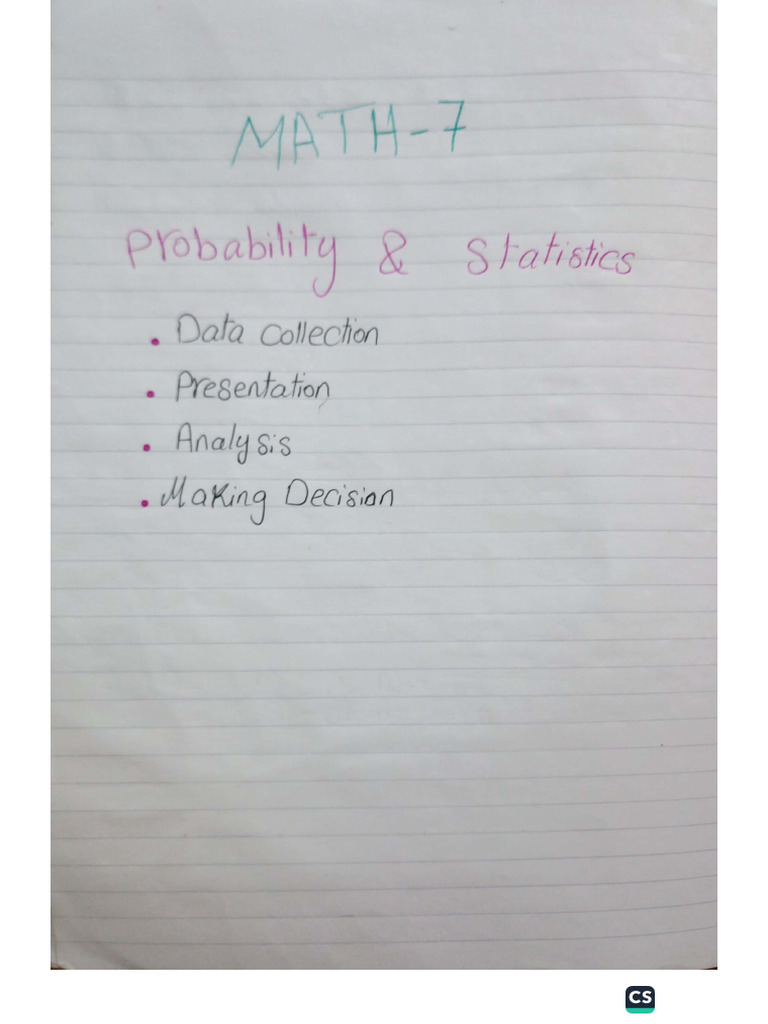 MATH-7
Probability & Statistics
• Data Collection
• Presentation
• Analysis
• Making Decision
CS